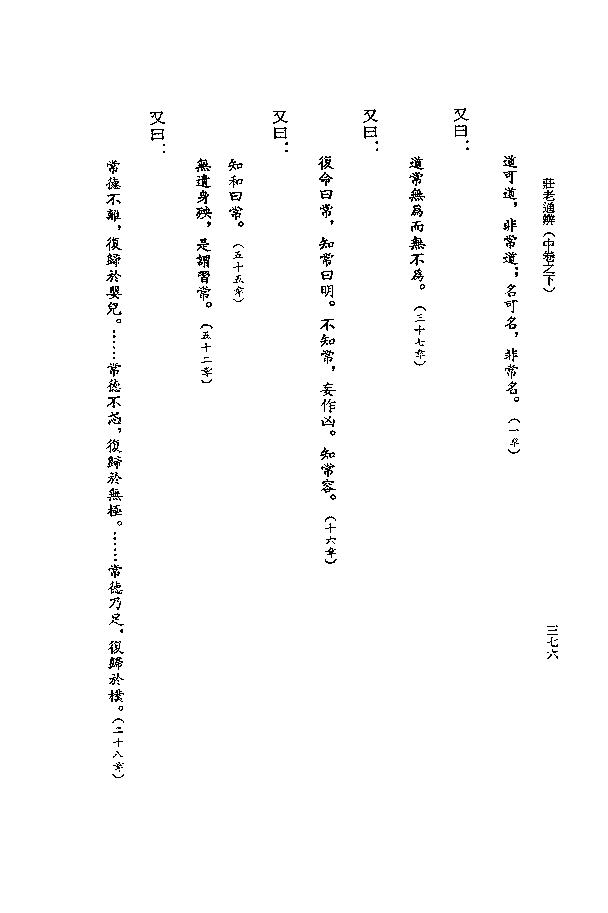 莊老通辨（中卷之下）
三七六
道可道，非常道；名可名，非常名。（一章）
又曰：
道常無為而無不為。（三十七章）
又曰：
復命曰常，知常曰明。不知常，妄作凶。知常容。（十六章）
又曰：
知和曰常。（五十五章）
無遺身殃，是謂習常。（五十二章）
又曰：
常德不離，復歸於嬰兒。……常德不忒，復歸於無極。……常德乃足，復歸於樸。（二十八章）